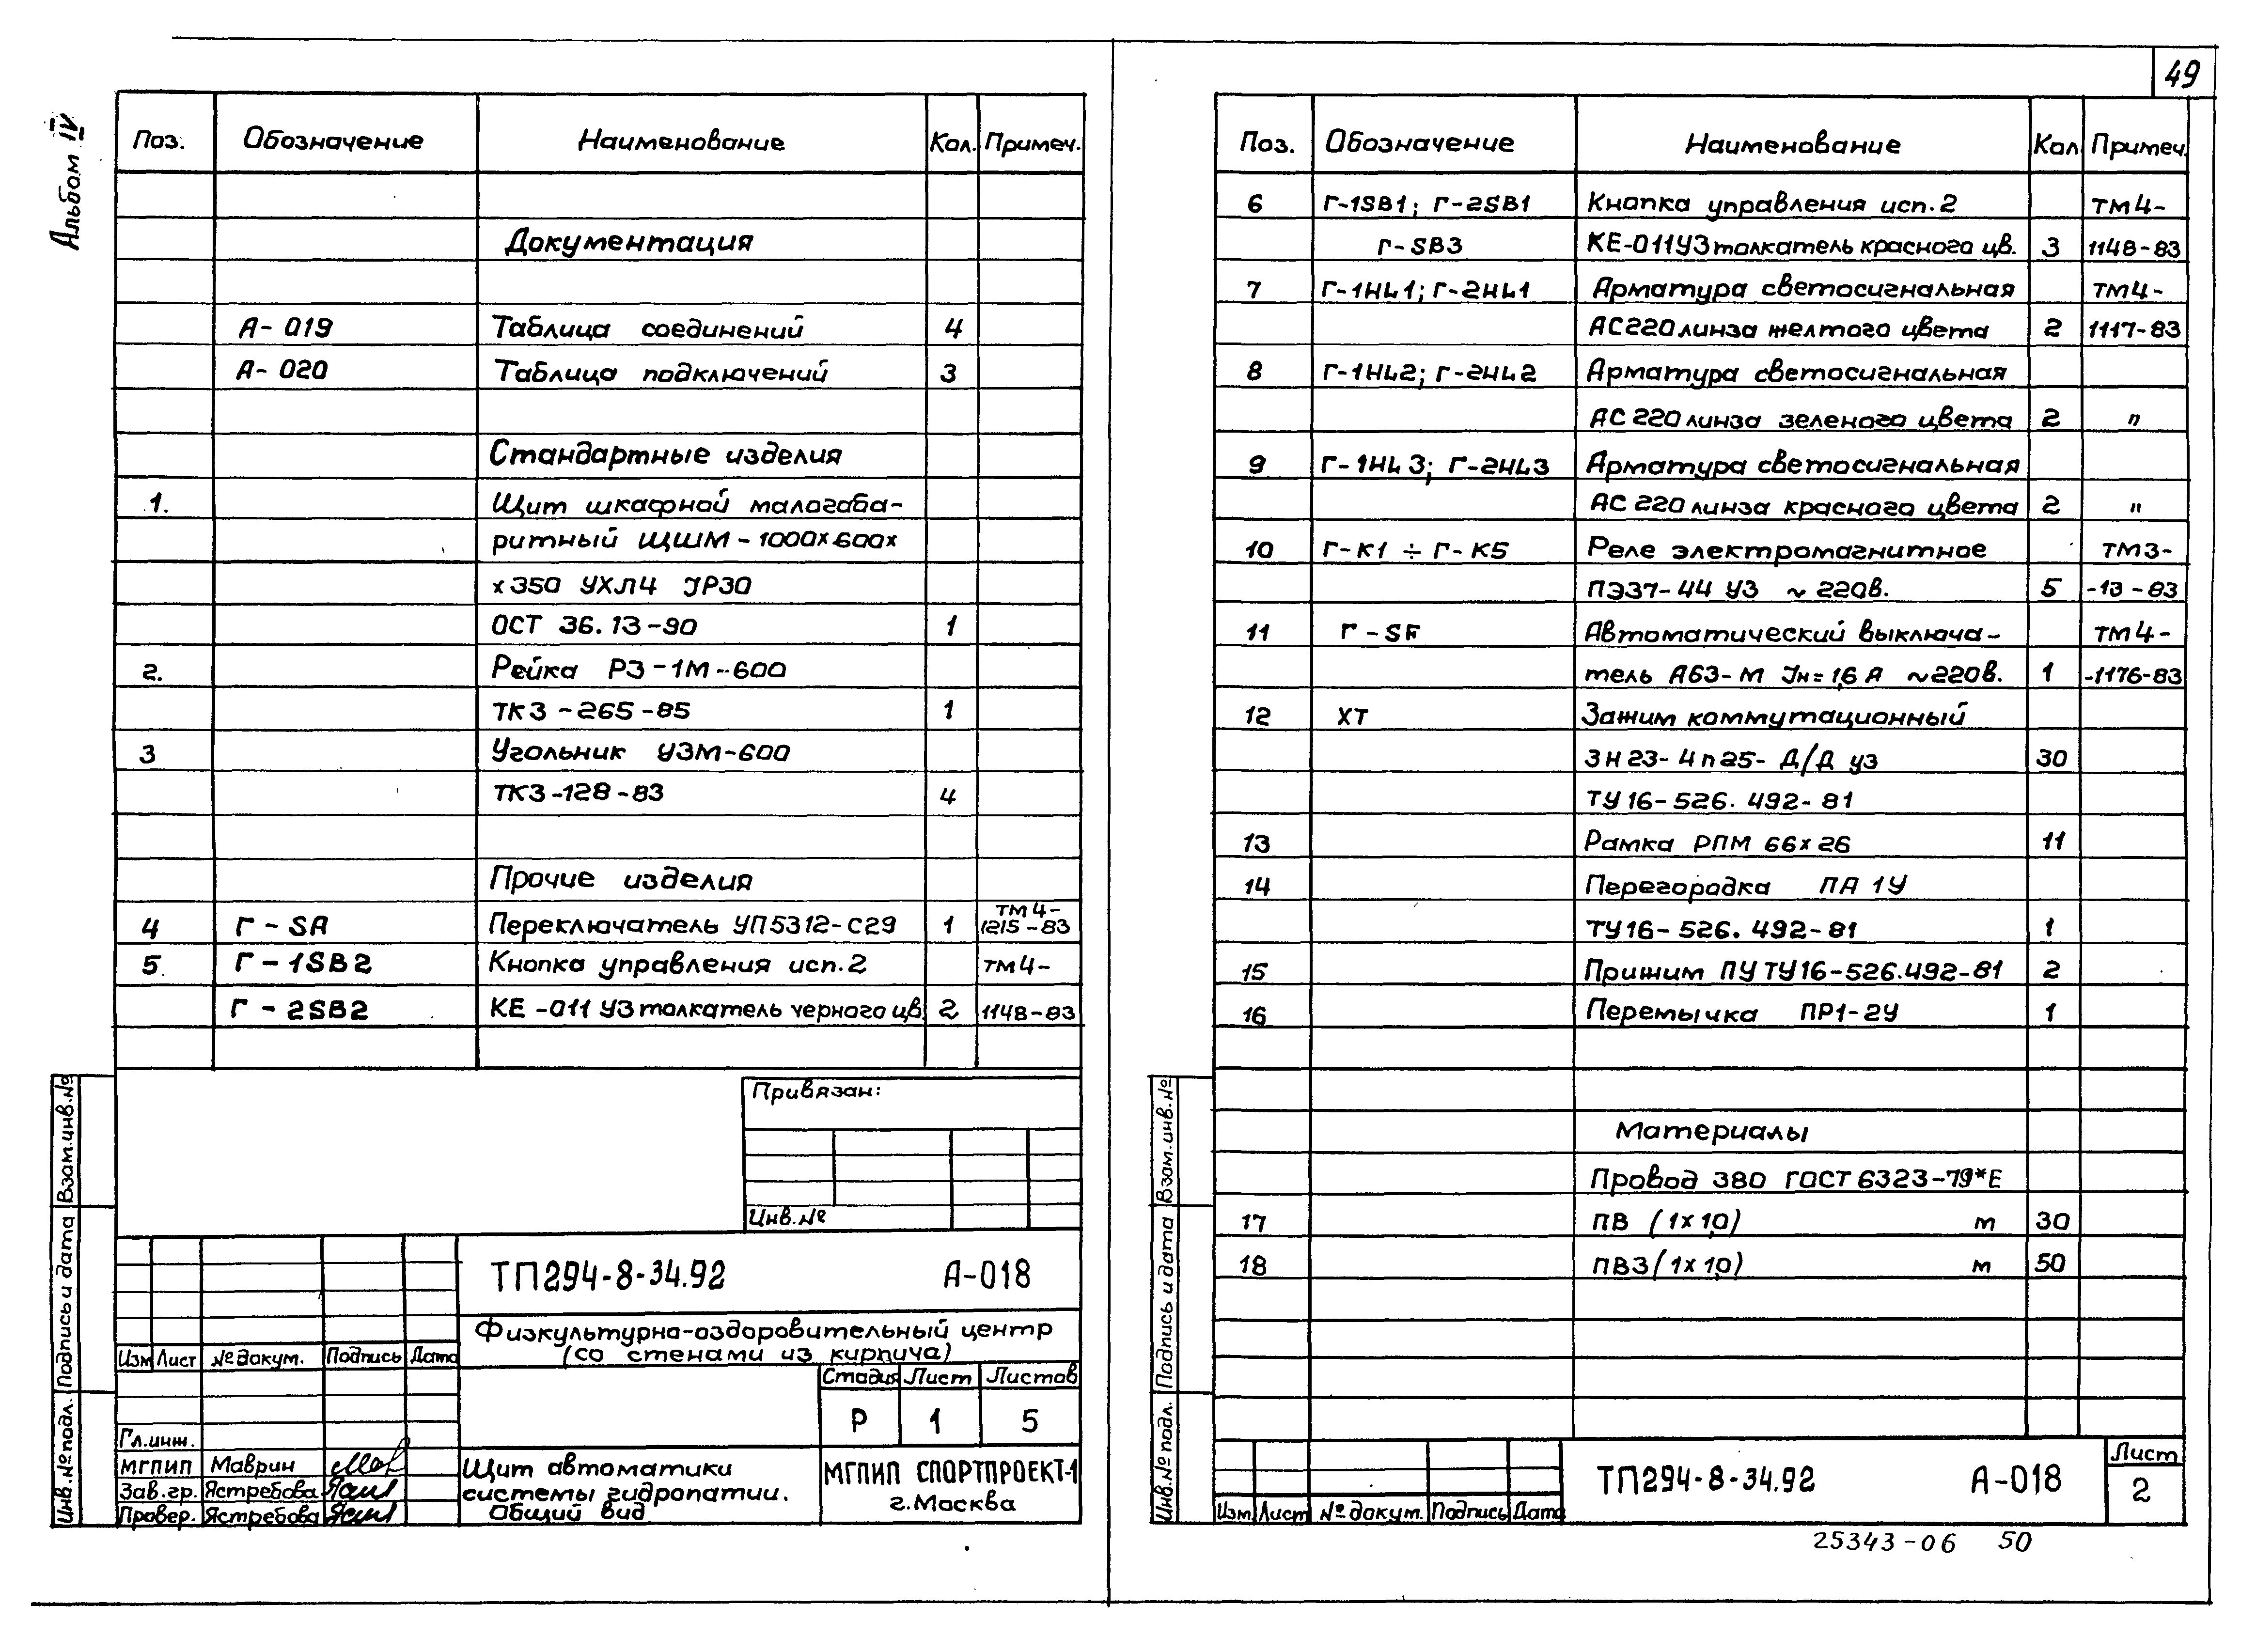 Альбом IV
Поз. Обозначение Наименование Кол. Примеч.
Документация
А-019 Таблица соединений 4
А-020 Таблица подключений 3
Стандартные изделия
1. Щит шкафной малогаба-
ритный ЩШМ-1000х600х
х350 УХЛ4 JP30
ОСТ 36.13-90 1
2. Рейка РЗ-1М-600
ТК3-265-85 1
3 Угольник УЗМ-600
ТК3-128-83 4
Прочие изделия
4 Г-SA Переключатель УП5312-С29 1 ТМ4-1215-83
5 Г-1SB2 Кнопка управления исп.2 ТМ4-
Г-2SB2 КЕ-011 У3 толкатель черного цв. 2 1148-83
Привязан:
Инв.№
ТП294-8-34.92 А-018
Физкультурно-оздоровительный центр
(со стенами из кирпича)
Изм Лист № докум. Подпись Дата
Стадия Лист Листов
Р 1 5
Гл.инж.
МГПИП Маврин
Зав.гр. Ястребова
Провер. Ястребова
Щит автоматики
системы гидропатии.
Общий вид
МГПИП СПОРТПРОЕКТ-1
г.Москва
Инв.№подл. Подпись и дата Взам.инв.№
49
Поз. Обозначение Наименование Кол. Примеч.
6 Г-1SB1; Г-2SB1 Кнопка управления исп.2 ТМ4-
Г-SB3 КЕ-011У3 толкатель красного цв. 3 1148-83
7 Г-1HL1; Г-2HL1 Арматура светосигнальная ТМ4-
АС220 линза желтого цвета 2 1117-83
8 Г-1HL2; Г-2HL2 Арматура светосигнальная
АС220 линза зеленого цвета 2 "
9 Г-1HL3; Г-2HL3 Арматура светосигнальная
АС220 линза красного цвета 2 "
10 Г-К1 ÷ Г-К5 Реле электромагнитное ТМ3-
ПЭ37-44 У3 ~ 220в. 5 -13-83
11 Г-SF Автоматический выключа- ТМ4-
тель А63-М Jн=1,6 А ~220в. 1 -1176-83
12 ХТ Зажим коммутационный
ЗН23-4п25-Д/Д У3 30
ТУ16-526.492-81
13 Рамка РПМ 66х26 11
14 Перегородка ПА 1У
ТУ16-526.492-81 1
15 Прижим ПУ ТУ16-526.492-81 2
16 Перемычка ПР1-2У 1
Материалы
Провод 380 ГОСТ 6323-79*Е
17 ПВ (1х1,0) м 30
18 ПВ3 (1х1,0) м 50
Инв.№подл. Подпись и дата Взам.инв.№
ТП294-8-34.92 А-018
Лист
2
Изм Лист № докум. Подпись Дата
25343-06 50